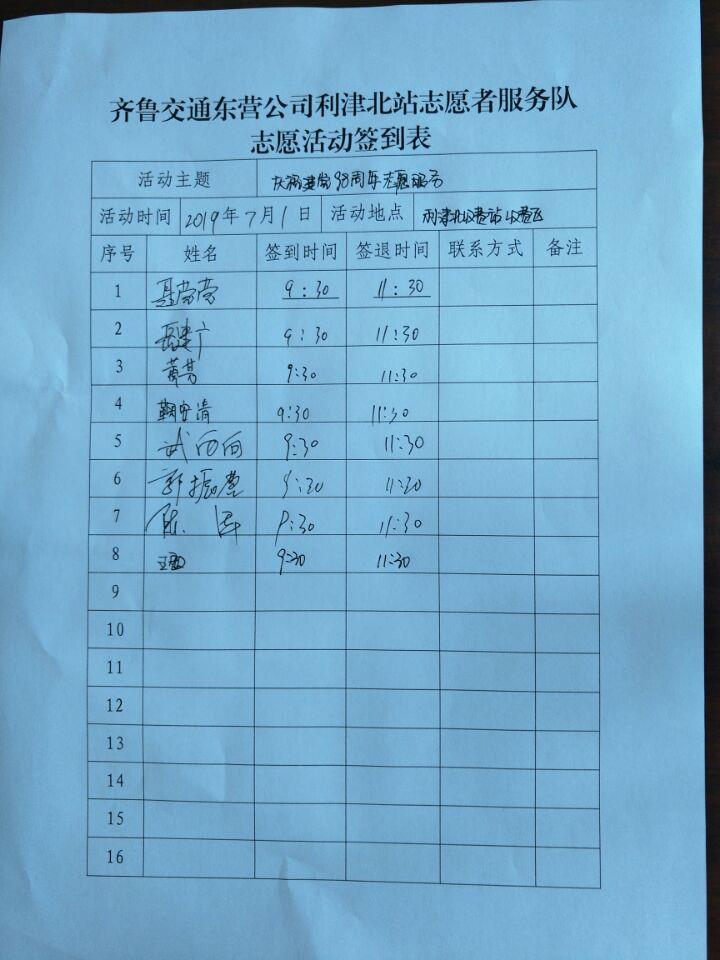 齐鲁交通东营公司利津北站志愿者服务队
志愿活动签到表
活动主题 庆祝建党98周年志愿服务
活动时间 2019年7月1日 活动地点 利津北收费站收费区
序号 姓名 签到时间 签退时间 联系方式 备注
1 聂营营 9:30 11:30
2 9:30 11:30
3 黄芳 9:30 11:30
4 鞠安清 9:30 11:30
5 武西向 9:30 11:30
6 郭振营 9:30 11:30
7 陈军 9:30 11:30
8 9:30 11:30
9
10
11
12
13
14
15
16